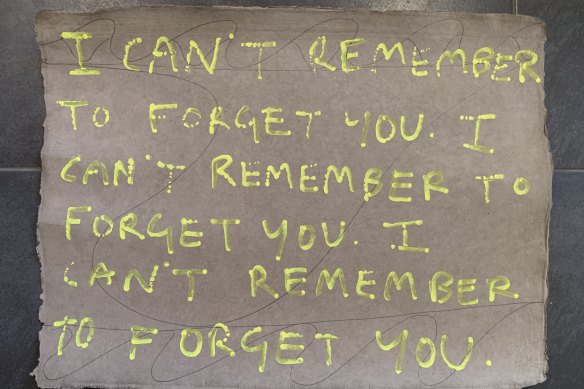 I CAN'T REMEMBER
TO FORGET YOU. I
CAN'T REMEMBER TO
FORGET YOU. I
CAN'T REMEMBER
TO FORGET YOU.